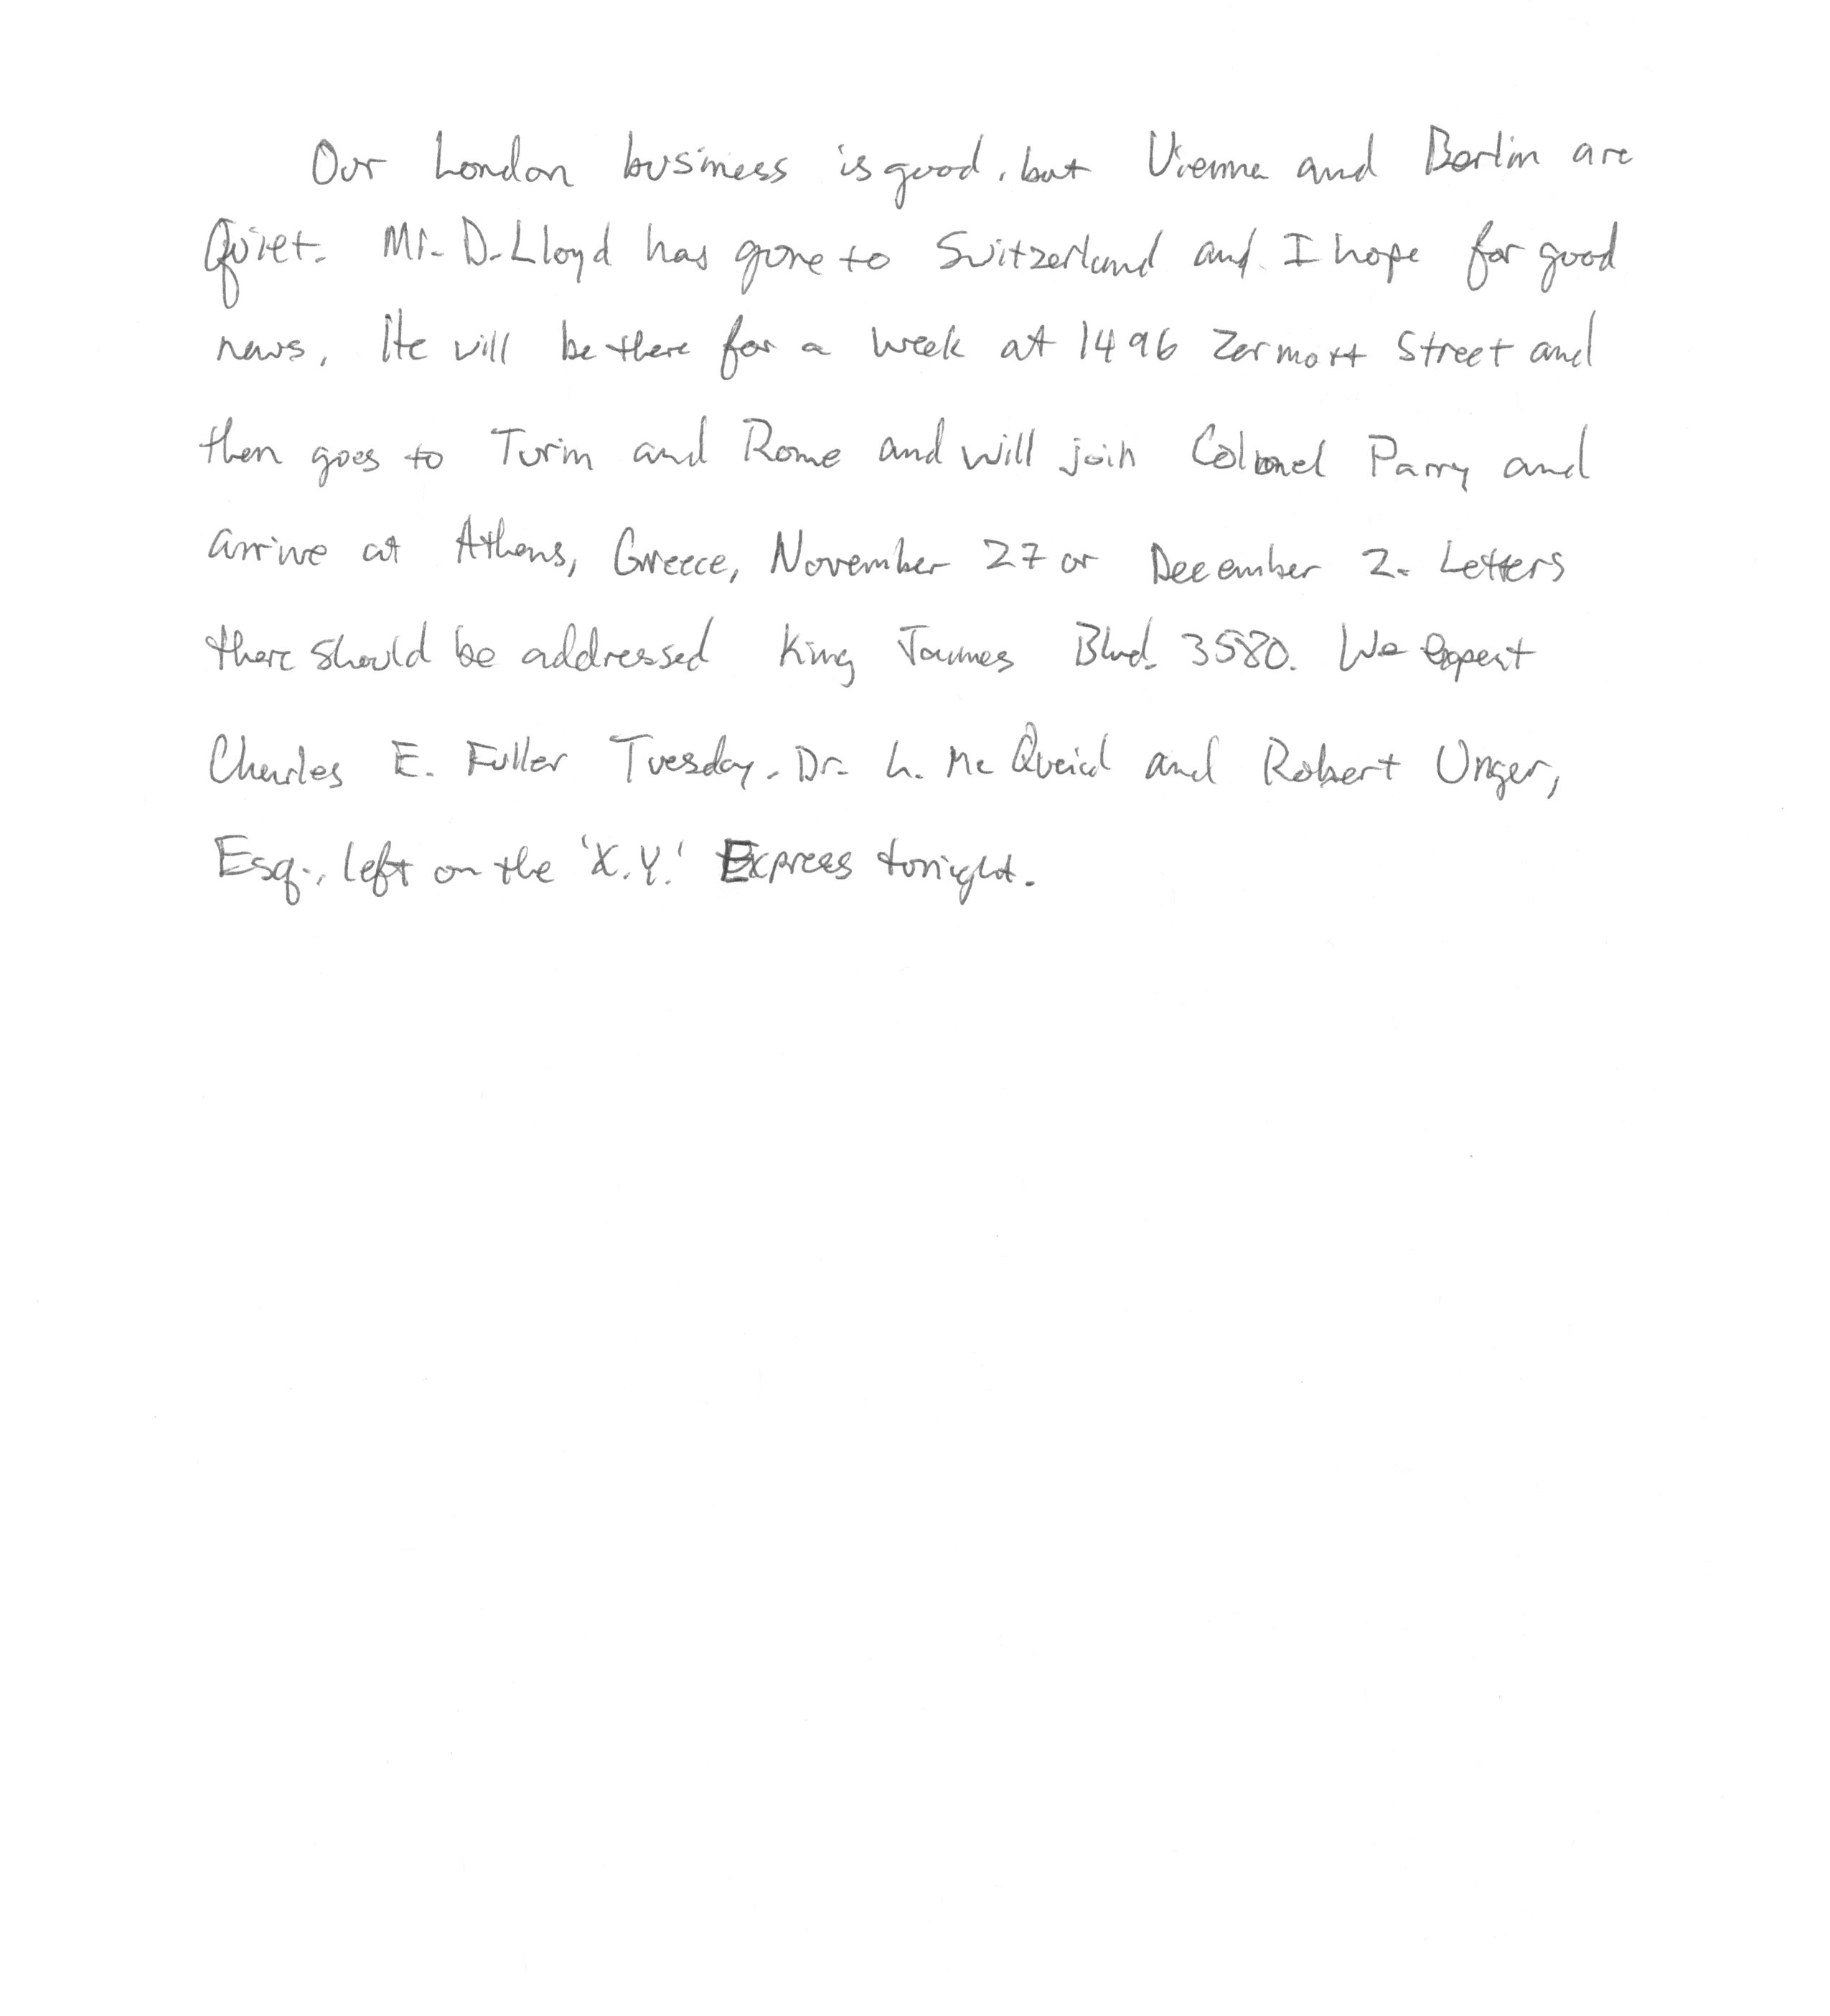 Our London business is good, but Vienna and Berlin are
Quiet. Mr. D. Lloyd has gone to Switzerland and I hope for good
news. He will be there for a week at 1496 Zermott Street and
then goes to Turin and Rome and will join Colonel Parry and
arrive at Athens, Greece, November 27 or December 2. Letters
there should be addressed King James Blvd. 3580. We expect
Charles E. Fuller Tuesday. Dr. L. Mc Quaid and Robert Unger,
Esq., left on the 'X.Y.' Express tonight.